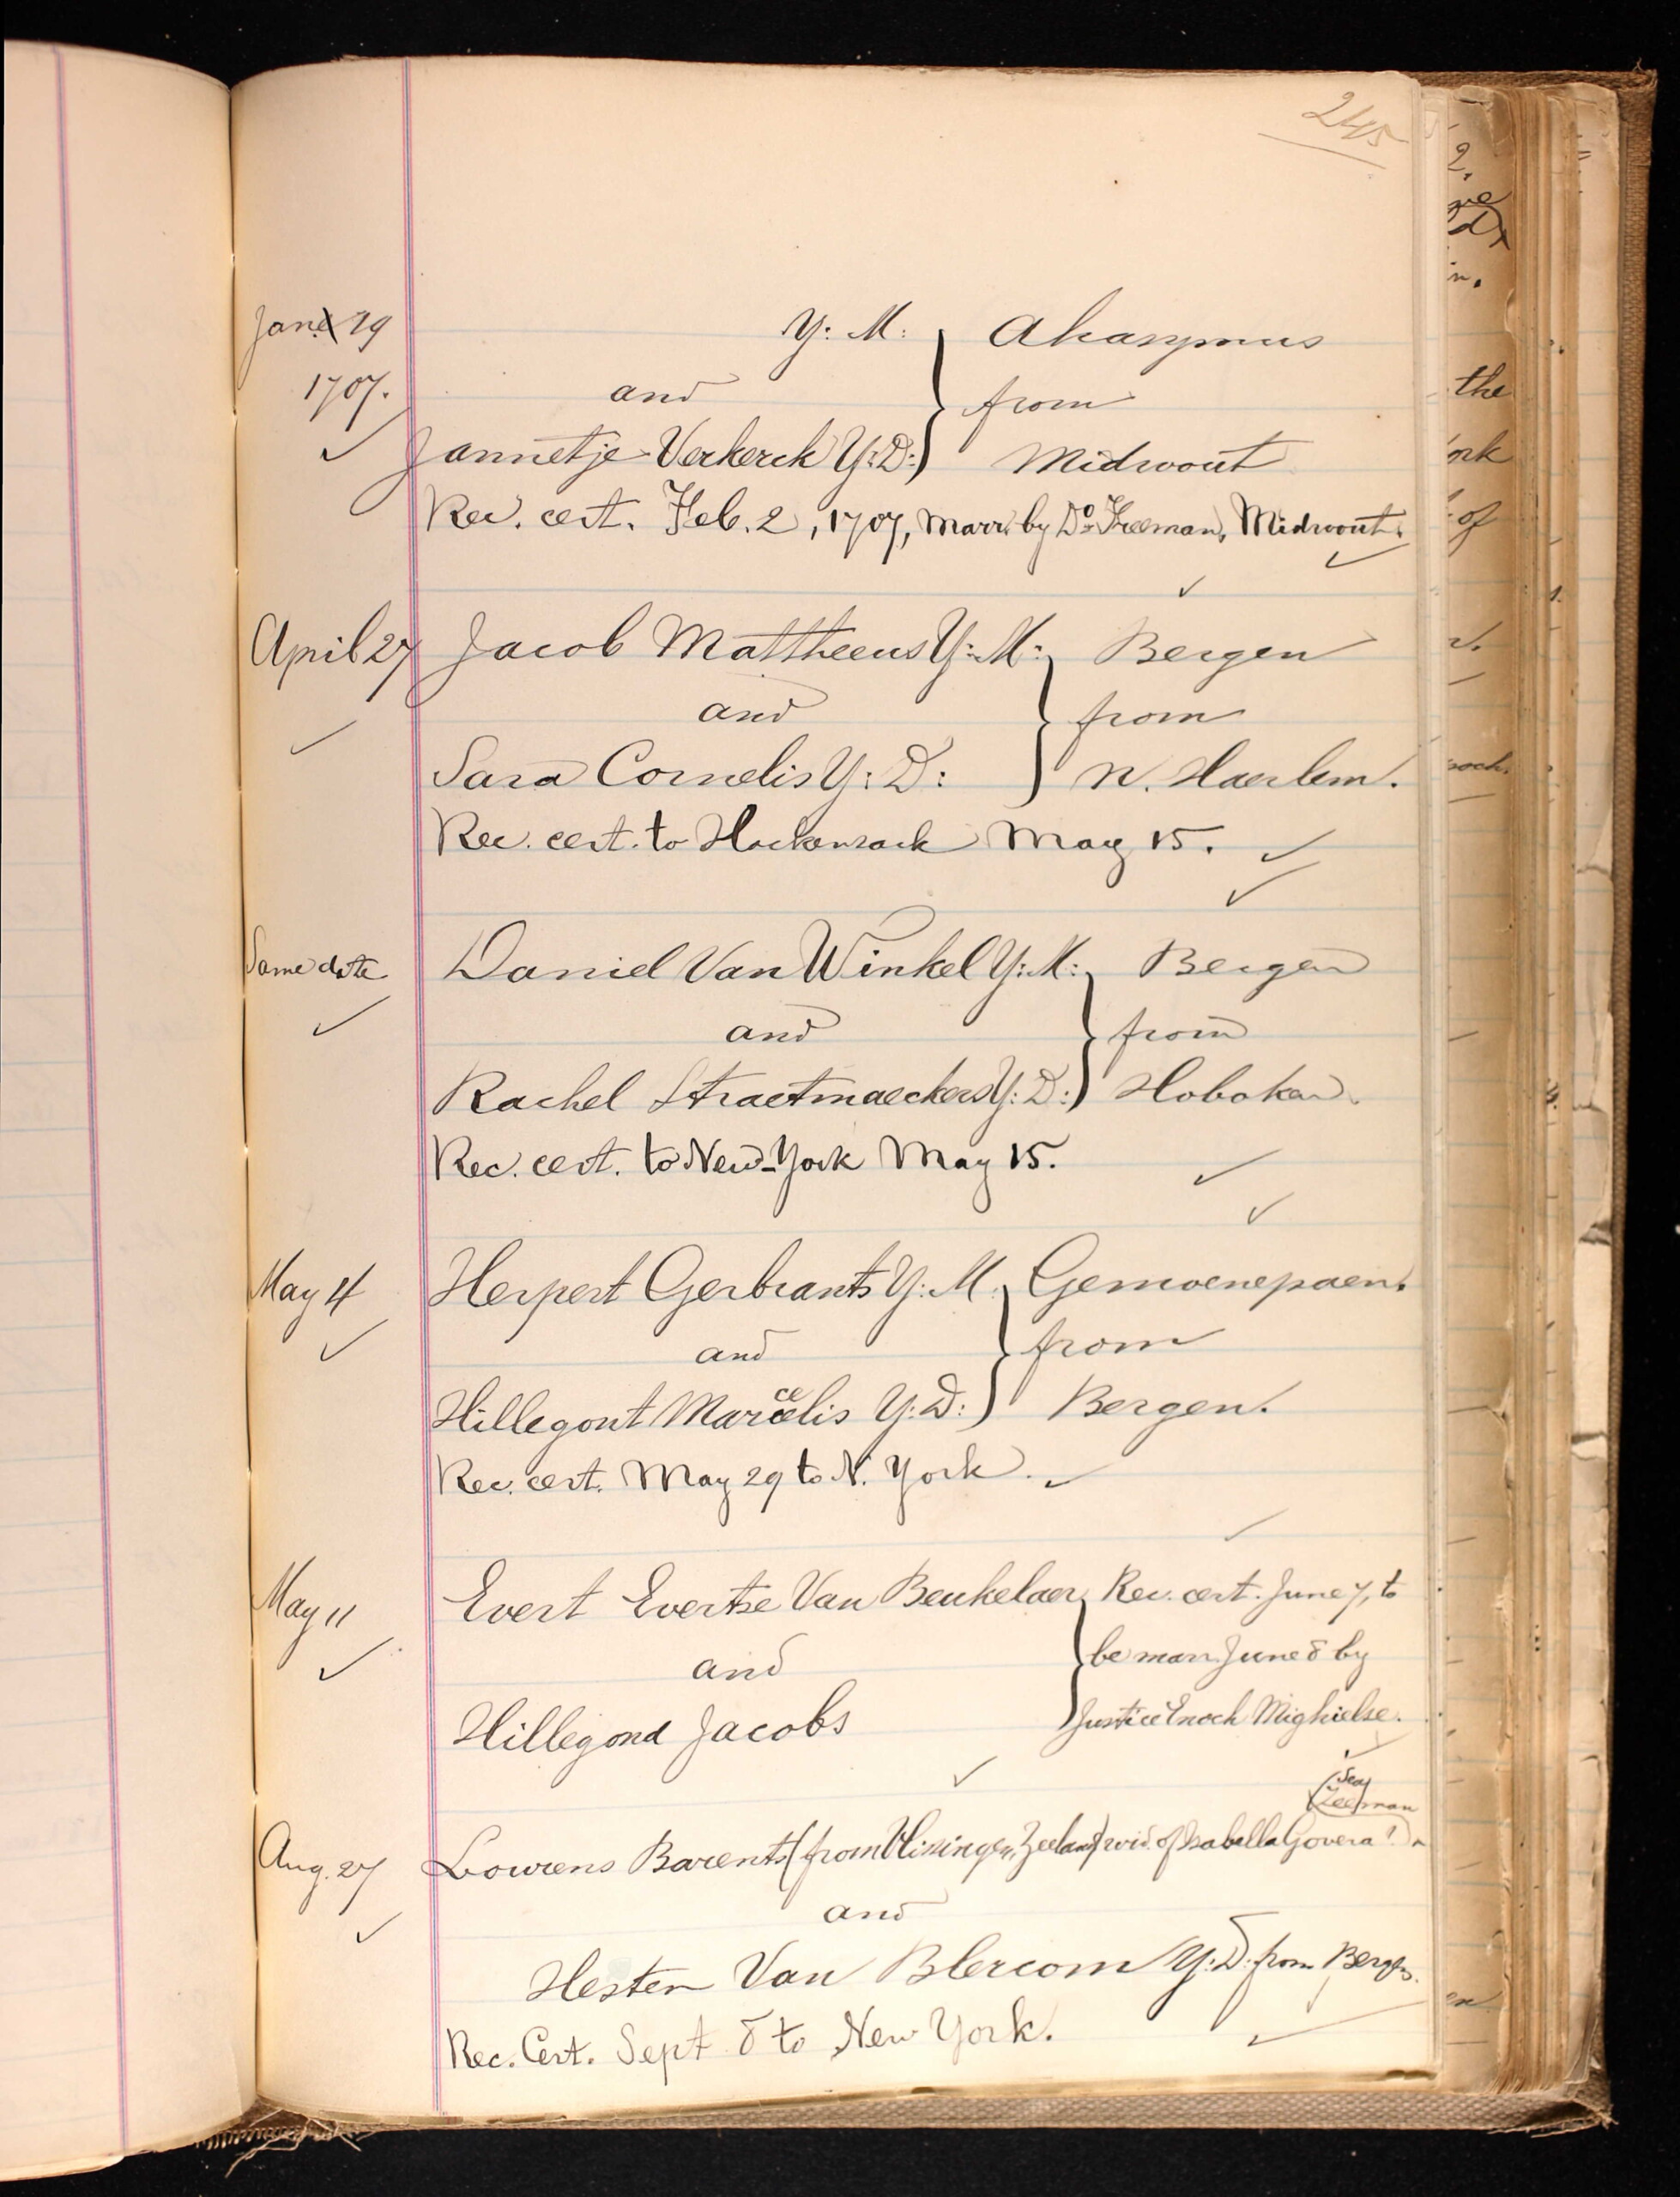 245
Jan. 29 Y: M: Ahasymus
1707. and from
Jannetje Verkerck Y: D: Midwout
Rec. cert. Feb. 2, 1707, Marr. by Do. Freeman, Midwout.
April 27 Jacob Mattheeus Y: M: Bergen
and from
Sara Cornelis Y: D: N. Haerlem.
Rec. cert. to Hackensack May 15.
Same date Daniel Van Winkel Y: M: Bergen
and from
Rachel Straetmaeckers Y: D: Hoboken.
Rec. cert. to New-York May 15.
May 4 Herpert Gerbrants Y: M. Gemoenepaen.
and from
Hillegont Marcelis Y: D: Bergen.
Rec. cert. May 29 to N. York.
May 11 Evert Evertse Van Beukelaer Rec. cert. June 7, to
and be marr. June 8 by
Hillegond Jacobs Justice Enoch Mighielse.
(Sea
Zee)man
Aug. 27 Lowrens Barents (from Vlisingen, Zeeland) wid. of Isabella Govera?)
and
Hester Van Blercom Y: D: from Bergen.
Rec. Cert. Sept 8 to New York.
the
of